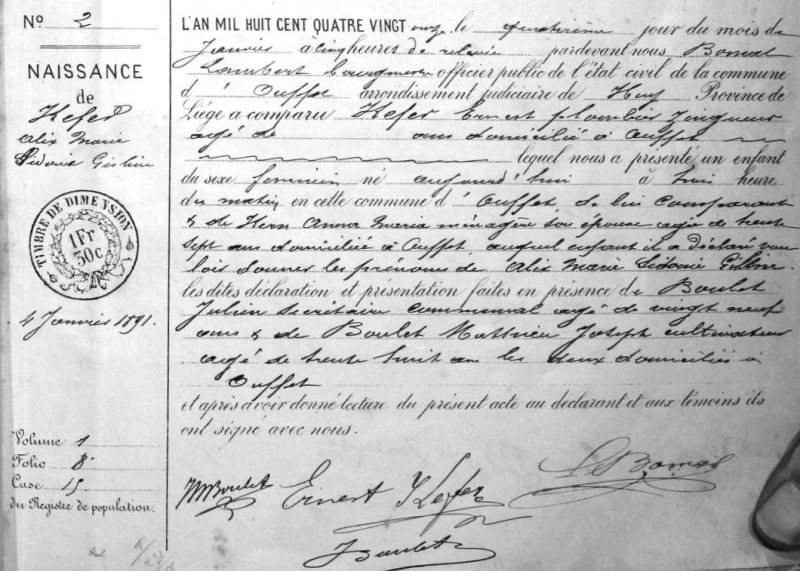 No 2
NAISSANCE
de
Kefer
Alix Marie
Sidonie Gislin
TIMBRE DE DIMENSION
1 Fr
30c
4 Janvier 1891.
Volume 1
Folio 8
Case 15
du Registre de population.
L'AN MIL HUIT CENT QUATRE VINGT onze le quatrième jour du mois de
Janvier à cinq heures de relevée pardevant nous Bomal
Lambert officier public de l'état civil de la commune
d' Ouffet arrondissement judiciaire de Huy Province de
Liége a comparu Kefer Ernest plombier Zingueur
agé de ans domicilié à Ouffet
lequel nous a présenté un enfant
du sexe feminin né aujourd'hui à huit heure
du matin en cette commune d' Ouffet de lui Comparant
& de Hern Anna Maria ménagère son épouse agée de trente
sept ans domiciliée à Ouffet, auquel enfant il a déclaré vou
loir donner les prénoms de Alix Marie Sidonie Gislin
les dites déclaration et présentation faites en présence de Boulet
Julien Secrétaire communal agé de vingt neuf
ans & de Boulet Mathieu Joseph cultivateur
agé de trente huit ans les deux domiciliés à
Ouffet
et après avoir donné lecture du présent acte au déclarant et aux témoins ils
ont signé avec nous.
MBoulet Ernest Kefer LBomal
JBoulet